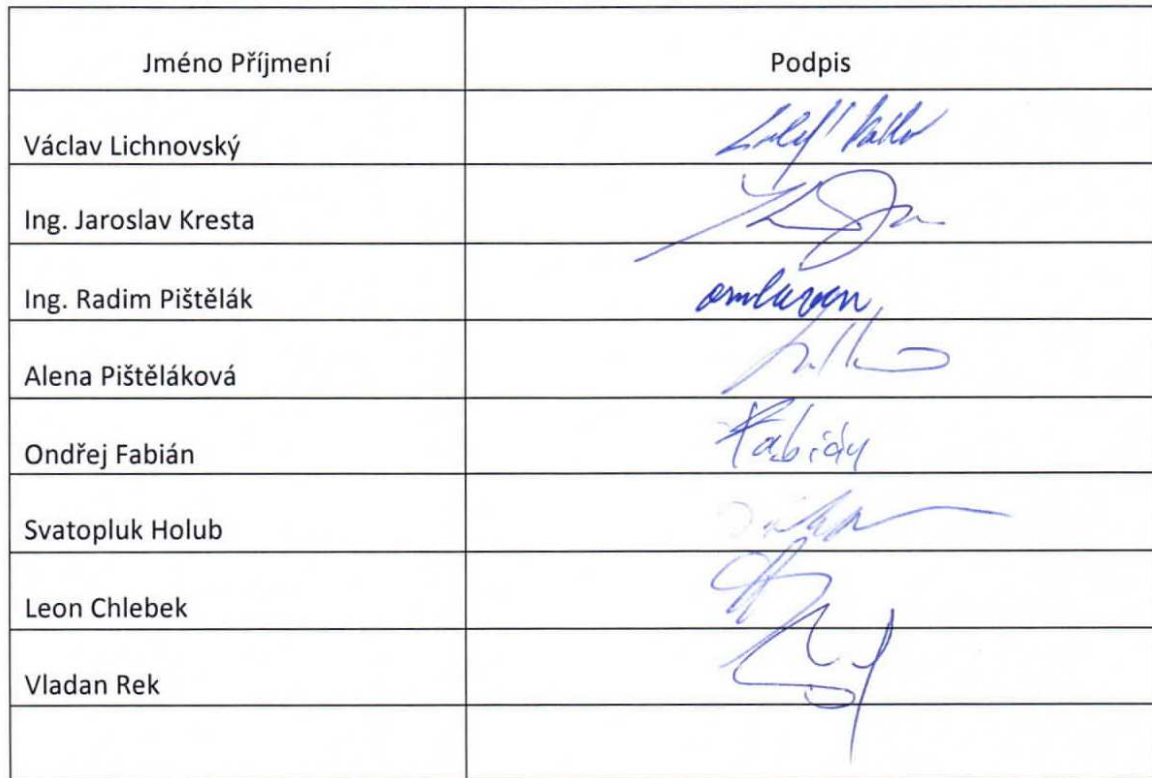 Jméno Příjmení Podpis
Václav Lichnovský
Ing. Jaroslav Kresta
Ing. Radim Pištělák omluven
Alena Pištěláková
Ondřej Fabián Fabián
Svatopluk Holub
Leon Chlebek
Vladan Rek